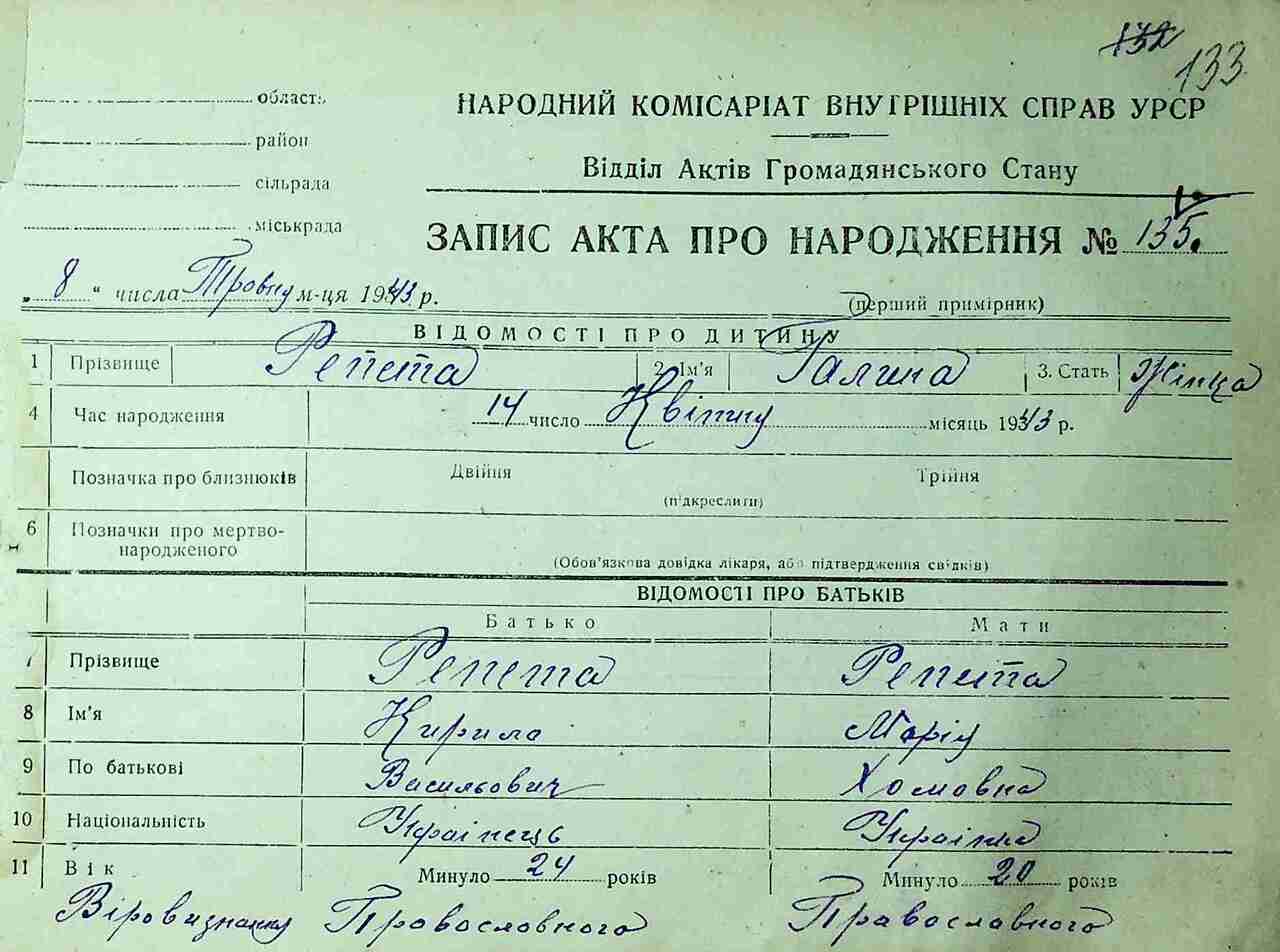 132
133
область
район
сільрада
міськрада
НАРОДНИЙ КОМІСАРІАТ ВНУТРІШНІХ СПРАВ УРСР
Відділ Актів Громадянського Стану
ЗАПИС АКТА ПРО НАРОДЖЕННЯ № 135.
„ 8 “ числа Тровня м-ця 1943 р.
(перший примірник)
ВІДОМОСТІ ПРО ДИТИНУ
1 Прізвище Репета 2. Ім'я Галина 3. Стать Жінка
4 Час народження 14 число Квітня місяць 1943 р.
Позначка про близнюків Двійня Трійня
(підкреслити)
6 Позначки про мертво-
народженого
(Обов'язкова довідка лікаря, або підтвердження свідків)
ВІДОМОСТІ ПРО БАТЬКІВ
Батько Мати
7 Прізвище Репета Репета
8 Ім'я Кирило Марія
9 По батькові Васильович Хомовна
10 Національність Українець Українка
11 Вік Минуло 24 років Минуло 20 років
Віровизнання Православного Православного